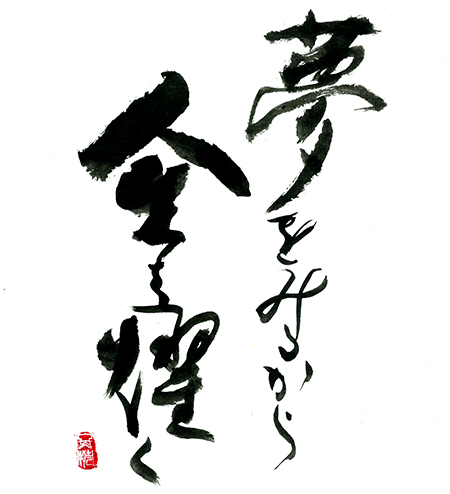 夢をみるから
人生は燿く